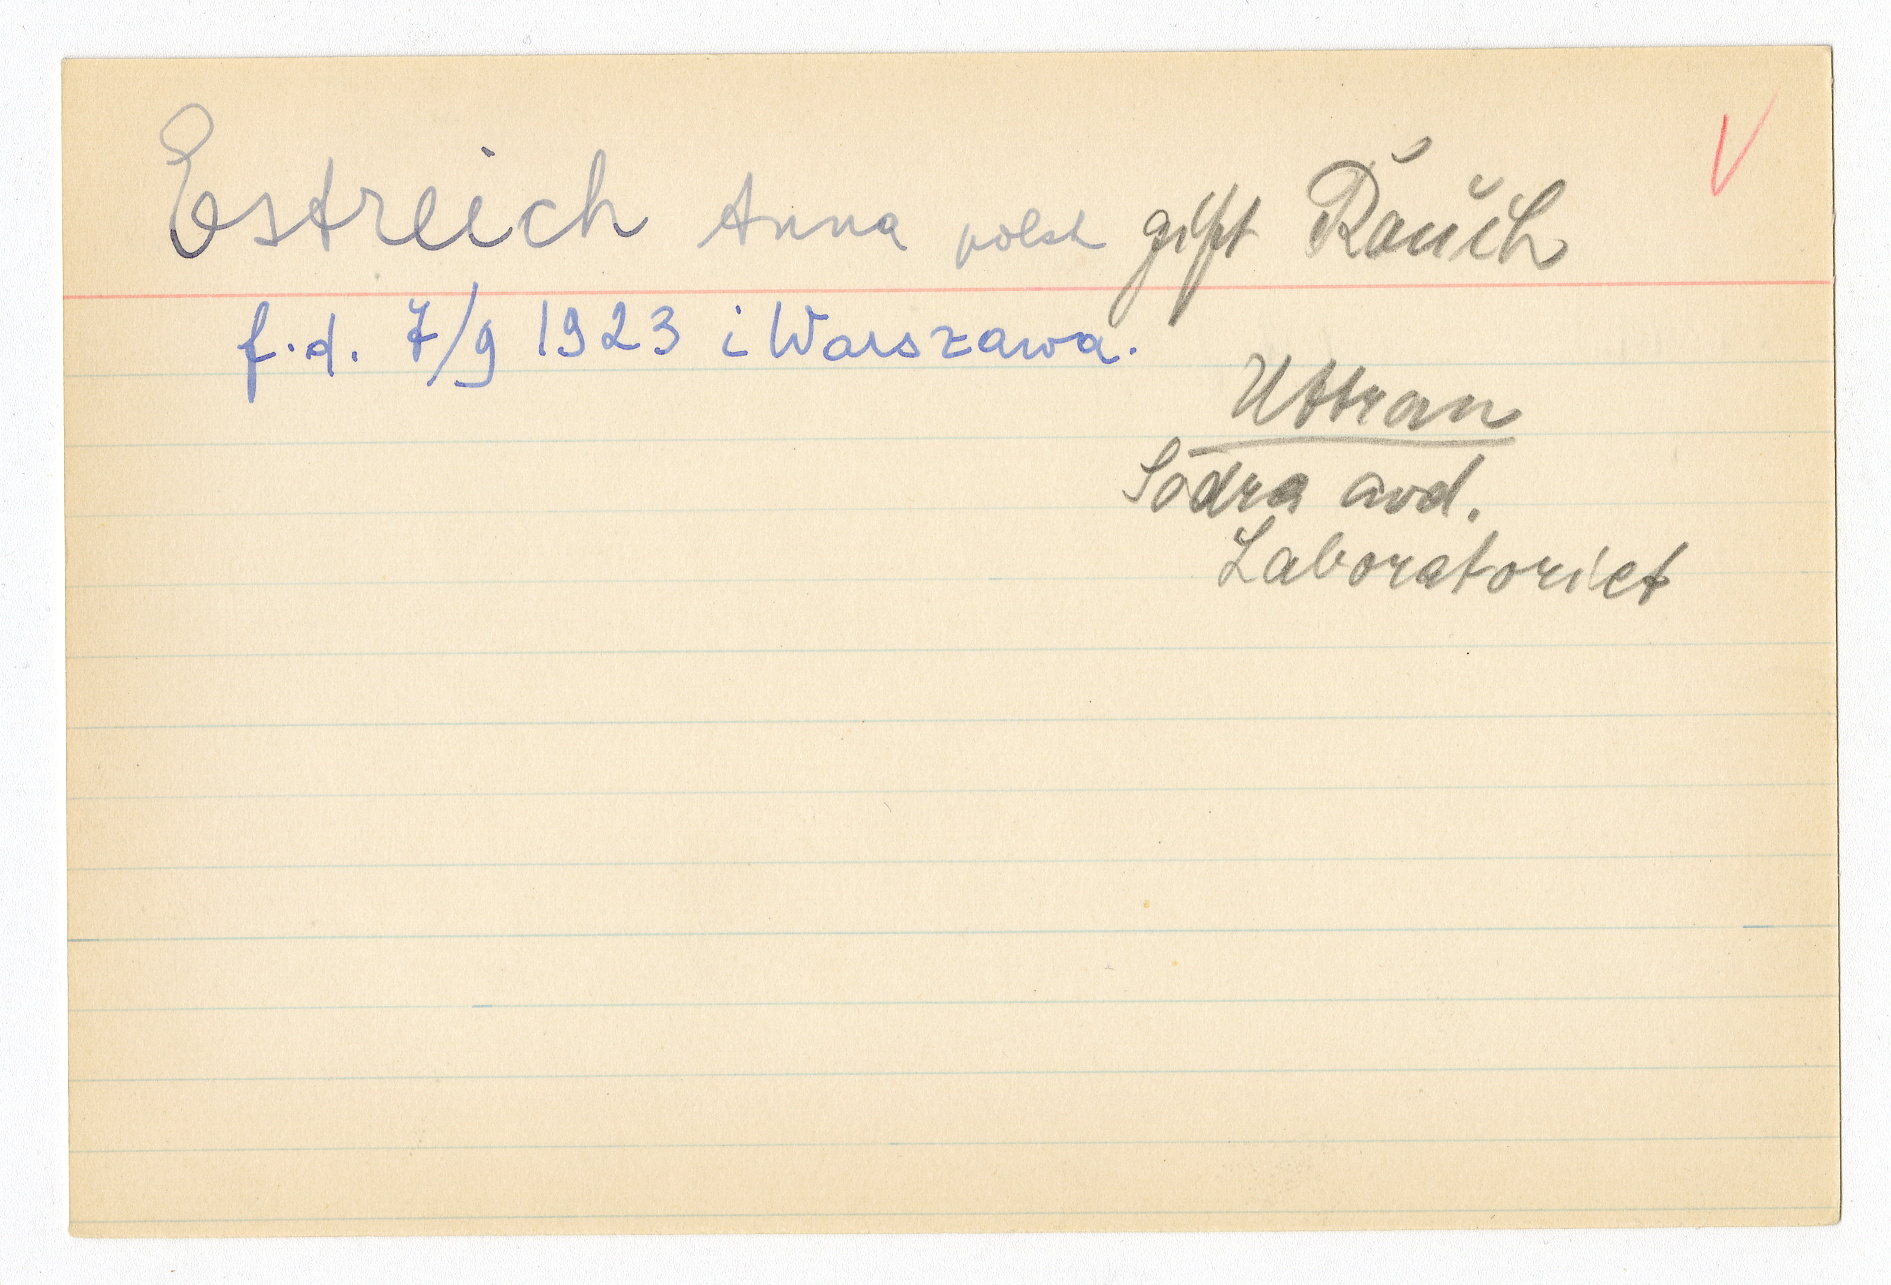 Estreich Anna polsk gift Rauch
f.d. 7/9 1923 i Warszawa.
Uttran
Södra avd.
Laboratoriet